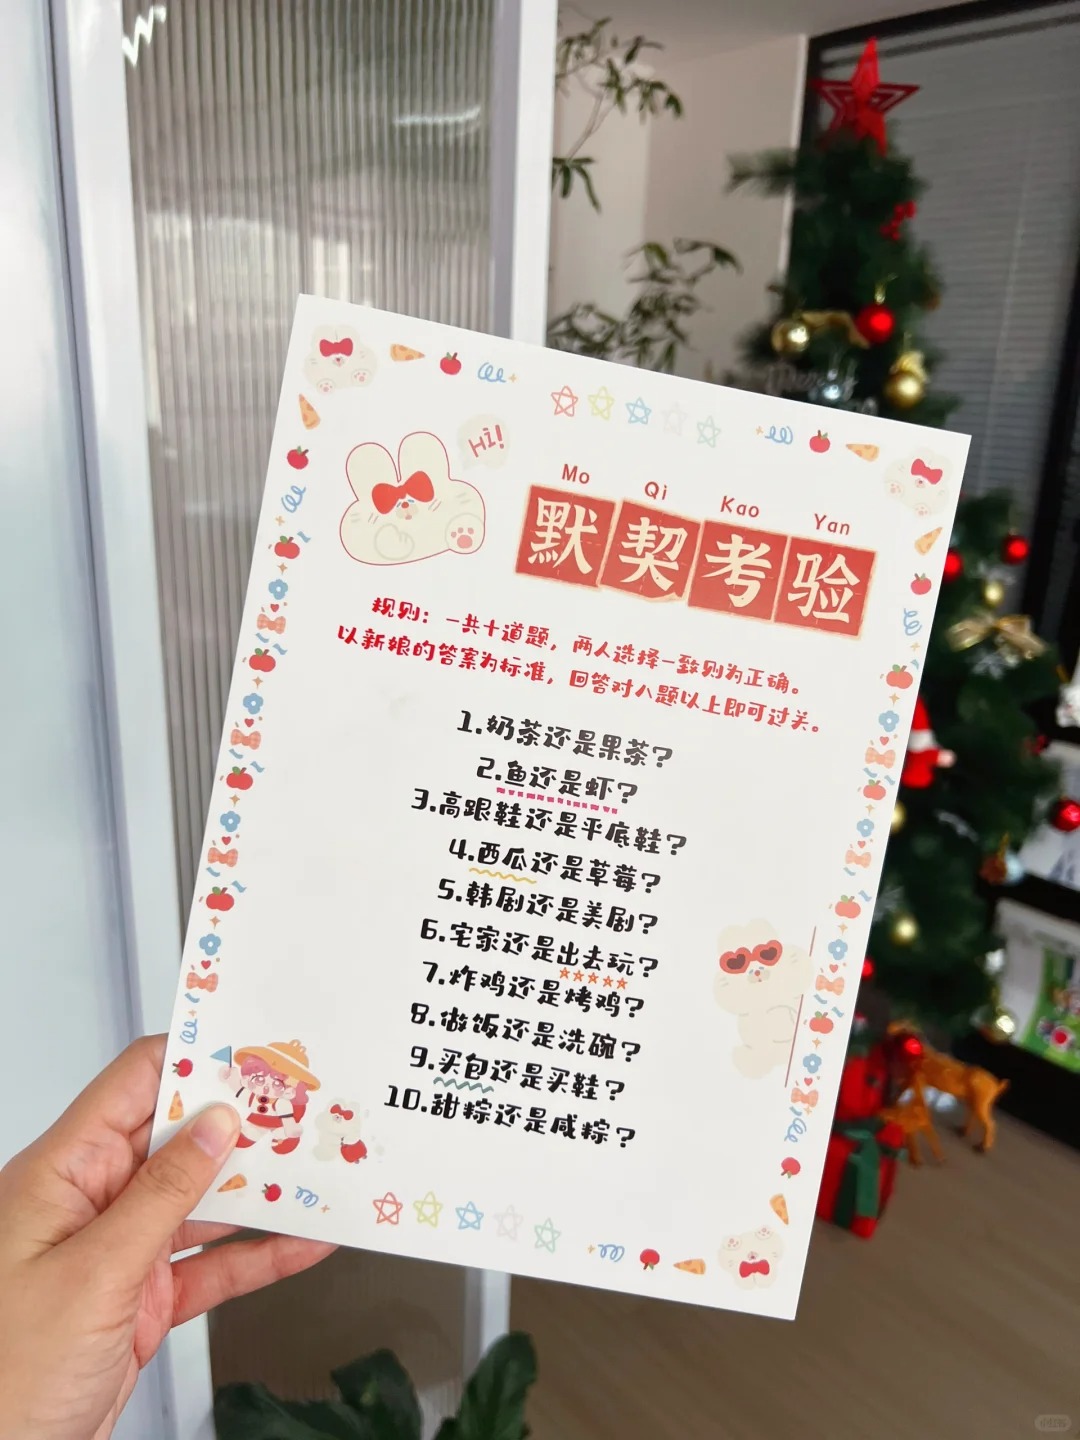 Hi!
Mo Qi Kao Yan
默契考验
规则：一共十道题，两人选择一致则为正确。
以新娘的答案为标准，回答对八题以上即可过关。
1.奶茶还是果茶？
2.鱼还是虾？
3.高跟鞋还是平底鞋？
4.西瓜还是草莓？
5.韩剧还是美剧？
6.宅家还是出去玩？
7.炸鸡还是烤鸡？
8.做饭还是洗碗？
9.买包还是买鞋？
10.甜粽还是咸粽？